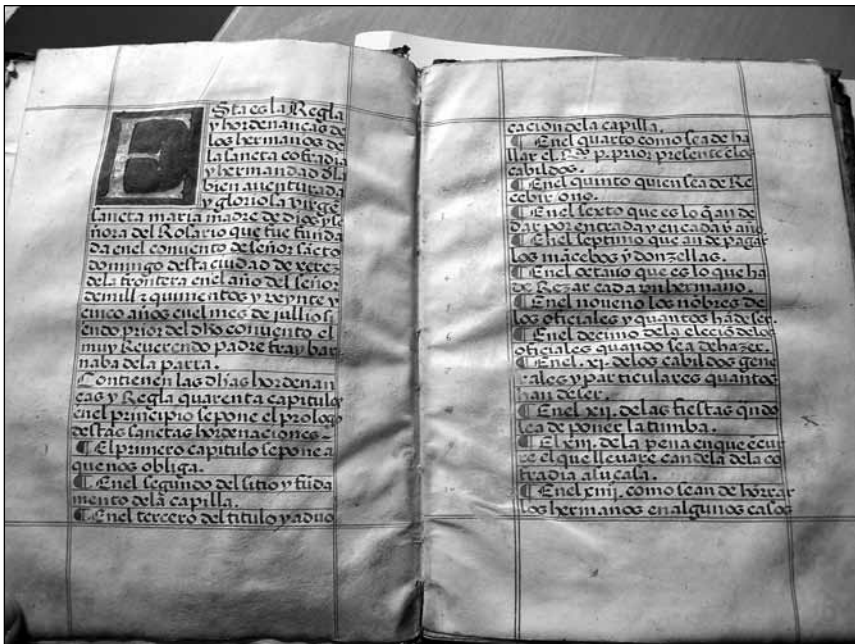 ESta es la Regla
y hordenanças de
los hermanos de
la sancta cofradia
y hermandad dla
bien auenturada
y gloriosa virgē
sancta maria madre de dios y se
ñora del Rosario que fue funda
da en el conuento de señor sācto
domingo desta ciudad de xerez
de la frontera en el año del señor
de mill z quinientos y veynte y
cinco años en el mes de jullio si
endo prior del dho conuento el
muy Reuerendo padre fray bar
naba de la parra.
Contienen las dhas hordenan
cas y Regla quarenta capitulos
en el principio se pone el prologo
destas sanctas hordenaciones
¶ El primero capitulo se pone a
que nos obliga.
¶ En el segundo del sitio y fūda
mento dela capilla.
¶ En el tercero del titulo y aduo
cacion de la capilla.
¶ En el quarto como sea de ha
llar el p. prior presente e los
cabildos.
¶ En el quinto quien sea de Re
cebir o no.
¶ En el sexto que es lo q̄ an de
dar por entrada y en cada vn año
¶ En el septimo que an de pagar
los mācebos y donzellas.
¶ En el octauo que es lo que ha
de Rezar cada vn hermano.
¶ En el noueno los nōbres de
los oficiales y quantos hā de ser.
¶ En el decimo de la elecciō de los
oficiales quando sea de hazer.
¶ En el .xj. de los cabildos gene
rales y particulares quantos
han de ser.
¶ En el xij. de las fiestas qn̄do
sea de poner la tumba.
¶ El xiij. de la pena en que ēcur
re el que lleuare candela de la co
fradia a su casa.
¶ En el xiiij. como sean de hōrrar
los hermanos en algunos casos